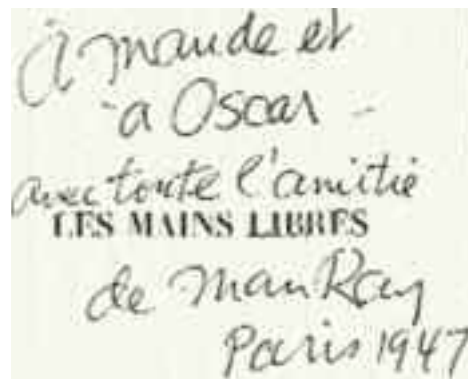 à Maude et
à Oscar -
avec toute l'amitié
LES MAINS LIBRES
de Man Ray
Paris 1947